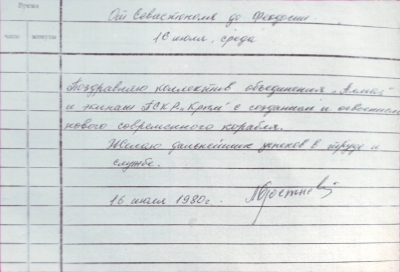 Румб
часы минуты
От Севастополя до Феодосии
16 июля, среда
Поздравляю коллектив объединения „Алмаз"
и экипаж ПСКР „Крым" с созданием и освоением
нового современного корабля.
Желаю дальнейших успехов в труде и
службе.
16 июля 1980г.